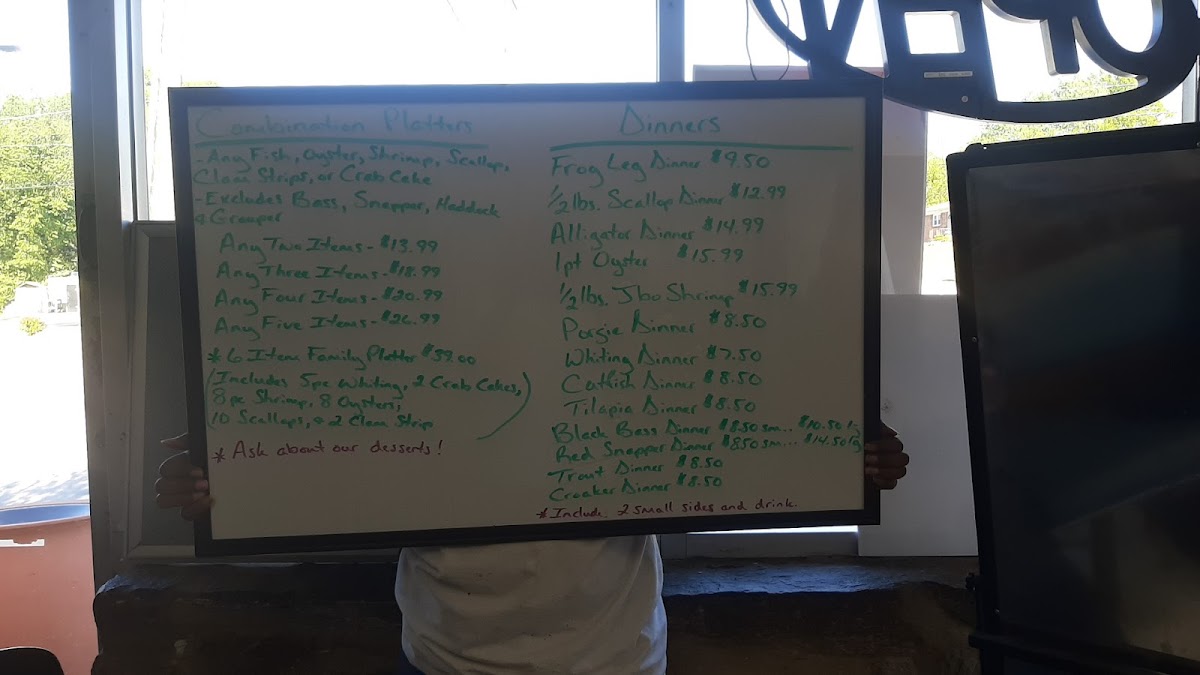 Combination Platters
- Any Fish, Oyster, Shrimp, Scallop,
Clam Strips, or Crab Cake
- Excludes Bass, Snapper, Haddock
& Grouper
Any Two Items - $13.99
Any Three Items - $18.99
Any Four Items - $20.99
Any Five Items - $26.99
* 6 Item Family Platter $39.00
(Includes 5pc Whiting, 2 Crab Cakes,
8pc Shrimp, 8 Oysters,
10 Scallops, & 2 Clam Strip)
* Ask about our desserts!
Dinners
Frog Leg Dinner $9.50
1/2 lbs. Scallop Dinner $12.99
Alligator Dinner $14.99
1pt Oyster $15.99
1/2 lbs. Jbo Shrimp $15.99
Porgie Dinner $8.50
Whiting Dinner $7.50
Catfish Dinner $8.50
Tilapia Dinner $8.50
Black Bass Dinner $8.50 sm... $10.50 lg
Red Snapper Dinner $8.50 sm... $14.50 lg
Trout Dinner $8.50
Croaker Dinner $8.50
* Include: 2 small sides and drink.